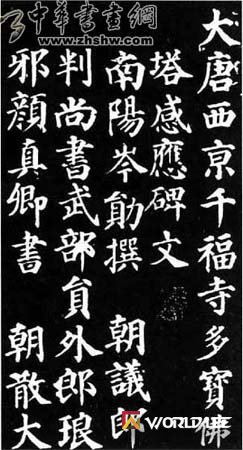 中華書畫網
www.zhshw.com
大唐西京千福寺多寶佛
塔感應碑文
南陽岑勛撰 朝議郎
判尚書武部員外郎琅
邪顏真卿書 朝散大
WORLDUC